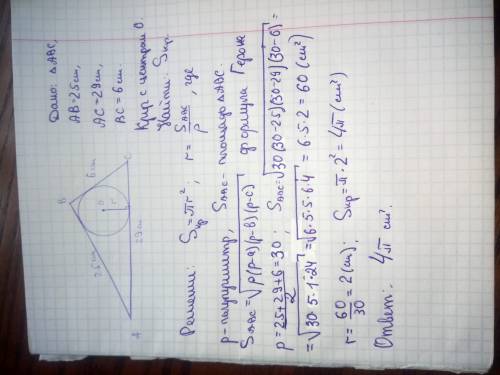 Дано: △ABC,
AB=25см,
AC=29см,
BC=6см.
Круг с центром O.
Найти: Sкр.
B
6см
C
O
r
25см
29см
A
Решение: Sкр=πr²; r=S△ABC/p, где
p-полупериметр, S△ABC-площадь △ABC.
S△ABC=√p(p-a)(p-b)(p-c) формула Герона
p=25+29+6/2=30; S△ABC=√30(30-25)(30-29)(30-6)=
=√30·5·1·24=√6·5·5·6·4=6·5·2=60(см²)
r=60/30=2(см); Sкр=π·2²=4π(см²)
Ответ: 4π см².